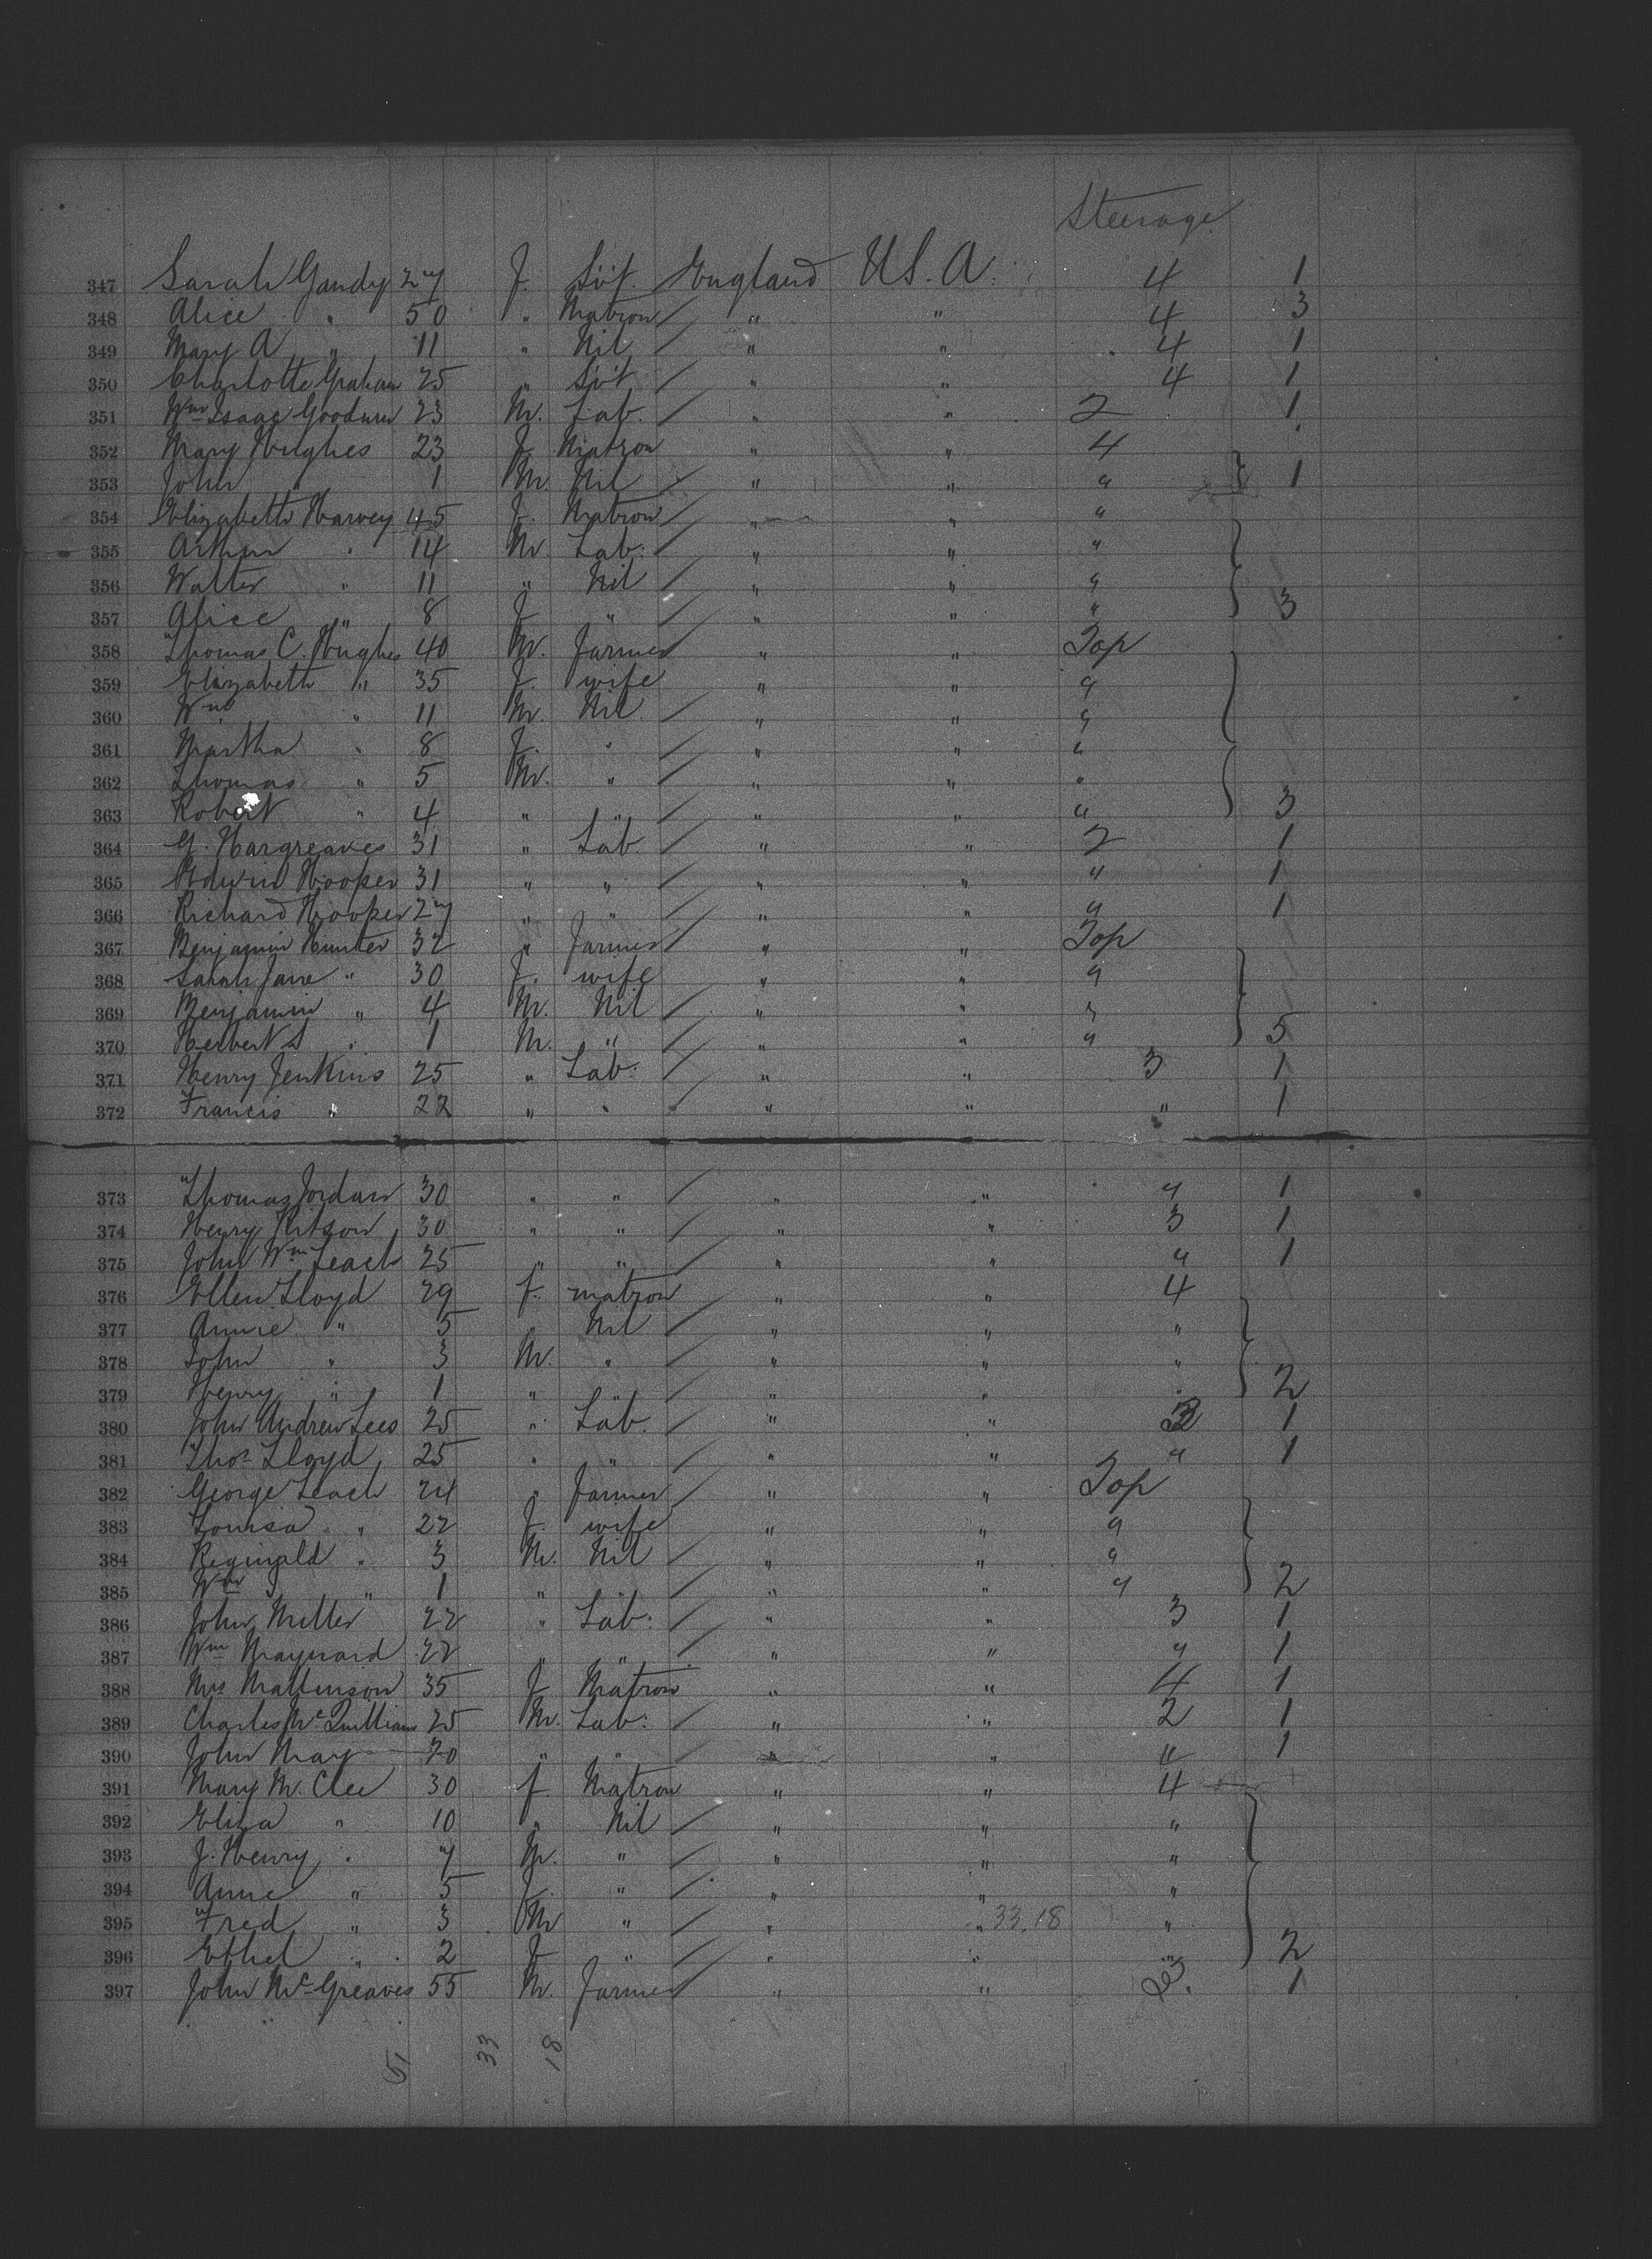 Steerage
347 Sarah Gandy 27 F. Svt. England U.S.A. 4 1
348 Alice " 50 " Matron " " 4 3
349 Mary A " 11 " Nil " " 4 1
350 Charlotte Graham 25 " Svt " " 4 1
351 Wm Isaac Goodwin 23 M. Lab. " " 2 1
352 Mary Hughes 23 F Matron " " 4
353 John " 1 M. Nil " " " 1
354 Elizabeth Harvey 45 F. Matron " " "
355 Arthur " 14 M. Lab: " " "
356 Walter " 11 " Nil " " "
357 Alice " 8 F " " " " 3
358 Thomas C. Hughes 40 M. Farmer " " Top
359 Elizabeth " 35 F. wife " " "
360 Wm " 11 M. Nil " " "
361 Martha " 8 F. " " " "
362 Thomas " 5 M. " " " "
363 Robert " 4 " " " " " 3
364 G. Hargreaves 31 " Lab. " " 2 1
365 Edwin Hooper 31 " " " " " 1
366 Richard Hooper 27 " " " " " 1
367 Benjamin Hunter 32 " Farmer " " Top
368 Sarah Jane " 30 F. wife " " "
369 Benjamin " 4 M. Nil " " "
370 Herbert S " 1 M. " " " " 5
371 Henry Jenkins 25 " Lab: " " 3 1
372 Francis " 22 " " " " " 1
373 Thomas Jordan 30 " " " " " 1
374 Henry Kitson 30 " " " " 3 1
375 John Wm Leach 25 " " " " " 1
376 Ellen Lloyd 29 f. matron " " 4
377 Annie " 5 " Nil " " "
378 John " 3 M. " " " "
379 Henry " 1 " " " " " 2
380 John Andrew Lees 25 " Lab. " " 1
381 Thos Lloyd 25 " " " " " 1
382 George Leach 24 " Farmer " " Top
383 Louisa " 22 F. wife " " "
384 Reginald " 3 M. Nil " " "
385 Wm " 1 " " " " 2
386 John Miller 22 " Lab: " " 3 1
387 Wm Maynard 22 " " " " " 1
388 Mrs Mallinson 35 F Matron " " 4 1
389 Charles Mc Quilliam 25 M. Lab: " " 2 1
390 John May 20 " " " " " 1
391 Mary M. Clee 30 f. Matron " " 4
392 Eliza " 10 " Nil " " "
393 J. Henry " 7 M. " " " "
394 Anne " 5 F. " " " "
395 Fred " 3 M " " " 33.18 "
396 Ethel " 2 F " " " " 2
397 John Mc Greaves 55 M. Farmer " " 1
51 33 18